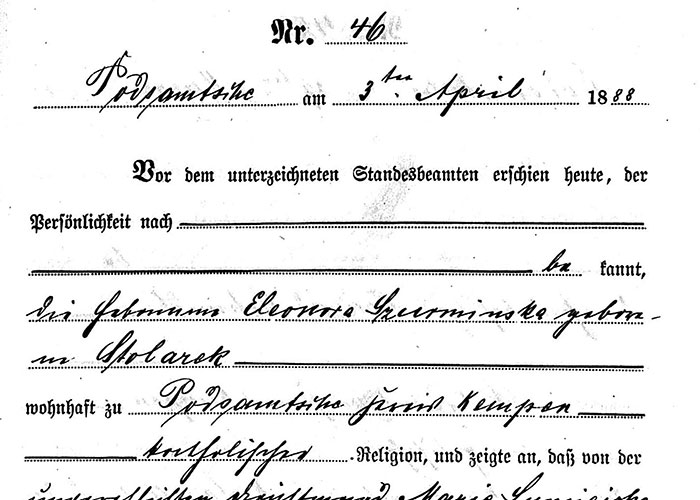 Nr. 46
Podsamtsche am 3ten April 1888
Vor dem unterzeichneten Standesbeamten erschien heute, der
Persönlichkeit nach
be kannt,
die Hebamme Eleonora Szurminska gebore-
ne Stolarek
wohnhaft zu Podsamtsche Kreis Kempen
katholischer Religion, und zeigte an, daß von der
unverehelichten Dienstmagd Marie